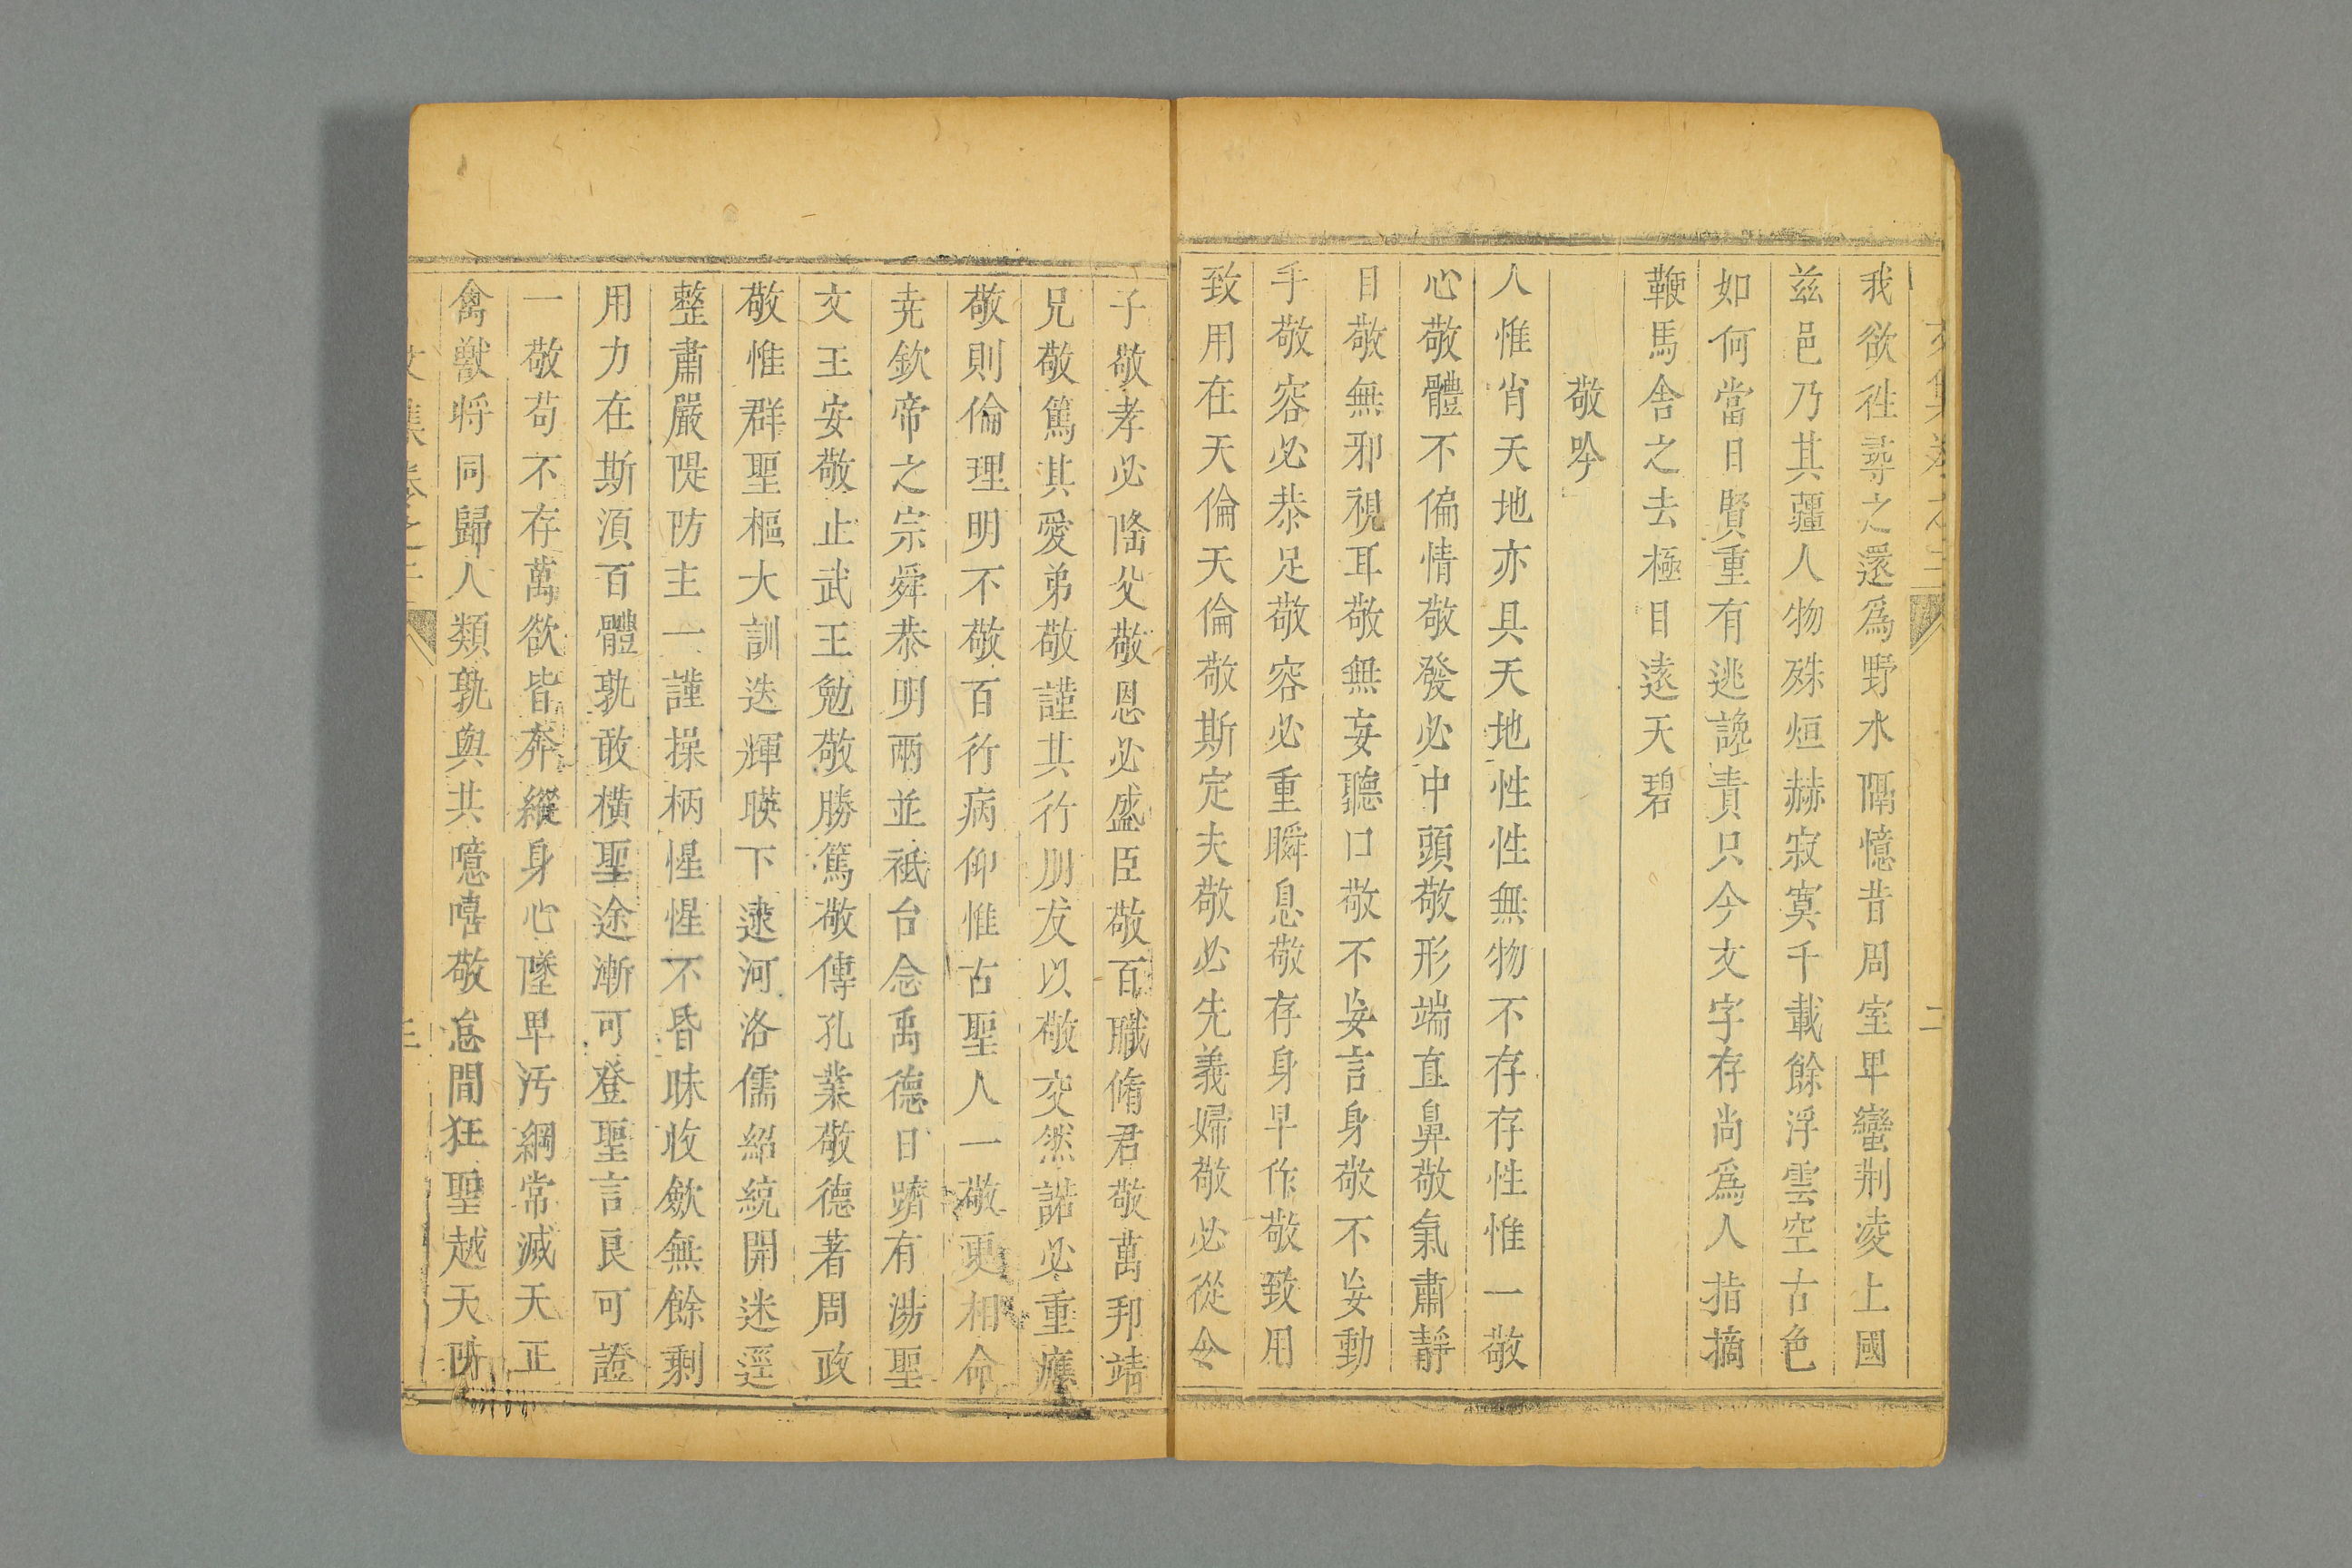 文集卷之三
二
我欲徃尋之還爲野水隔憶昔周室卑蠻荆凌上國
兹邑乃其疆人物殊烜赫寂寞千載餘浮雲空古色
如何當日賢重有逃讒責只今文字存尚爲人指摘
鞭馬舎之去極目遠天碧
敬吟
人惟肖天地亦具天地性性無物不存存性惟一敬
心敬體不偏情敬發必中頭敬形端直鼻敬氣肅靜
目敬無邪視耳敬無妄聽口敬不妄言身敬不妄動
手敬容必恭足敬容必重瞬息敬存身早作敬致用
致用在天倫天倫敬斯定夫敬必先義婦敬必從令
子敬孝必隆父敬恩必盛臣敬百職脩君敬萬邦靖
兄敬篤其愛弟敬謹其行朋友以敬交然諾必重應
敬則倫理明不敬百行病仰惟古聖人一敬更相命
尭欽帝之宗舜恭明兩並祗台念禹德日躋有湯聖
文王安敬止武王勉敬勝篤敬傳孔業敬德著周政
敬惟群聖樞大訓迭輝暎下逮河洛儒紹統開迷逕
整肅嚴隄防主一謹操柄惺惺不昏昧收歛無餘剩
用力在斯湏百體孰敢橫聖途漸可登聖言良可證
一敬苟不存萬欲皆奔縱身心墜卑汚綱常滅天正
禽獸将同歸人類孰與共噫嘻敬怠間狂聖越天阱
文集卷之三
三